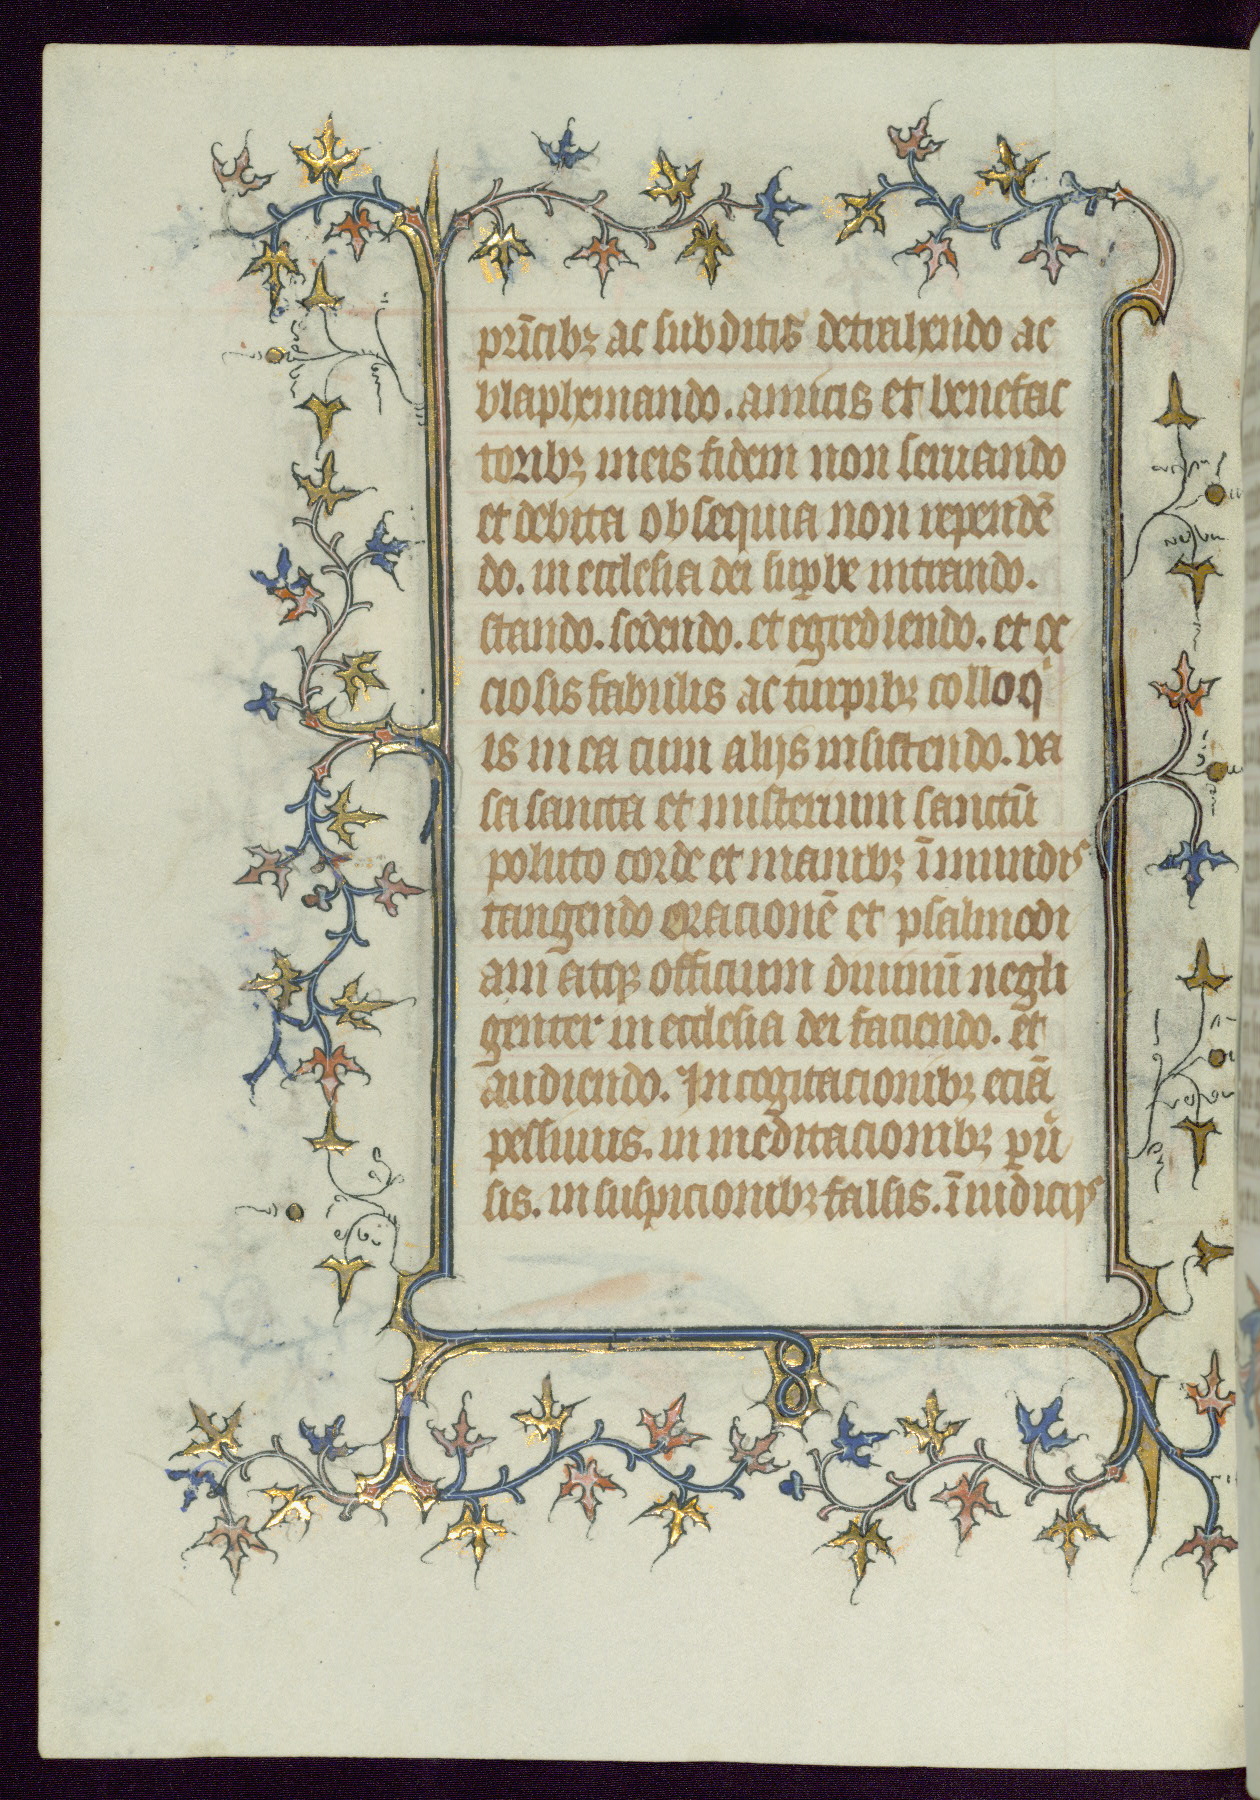 prīcibꝫ ac subditis detrahendo ac
blasphemando. amicis et benefac
toribꝫ meis fidem non seruando
et debita obsequia non rependē
do. in ecclesia dei suꝑbe intrando.
stando. sedendo. et egrediendo. et oc
ciosis fabulis ac turpibꝫ colloqⁱ
is in ea cum alijs insistendo. va
sa sancta et misterium sanctū
poluto corde et manibꝫ īmundis
tangendo oracionē et psalmodi
am atqꝫ officium diuinū negli
genter in ecclesia dei faciendo. et
audiendo. In cogitacionibꝫ eciā
pessimis. in meditacionibꝫ ꝑu͛
sis. in suspicionibꝫ falsis. ī iudicijs